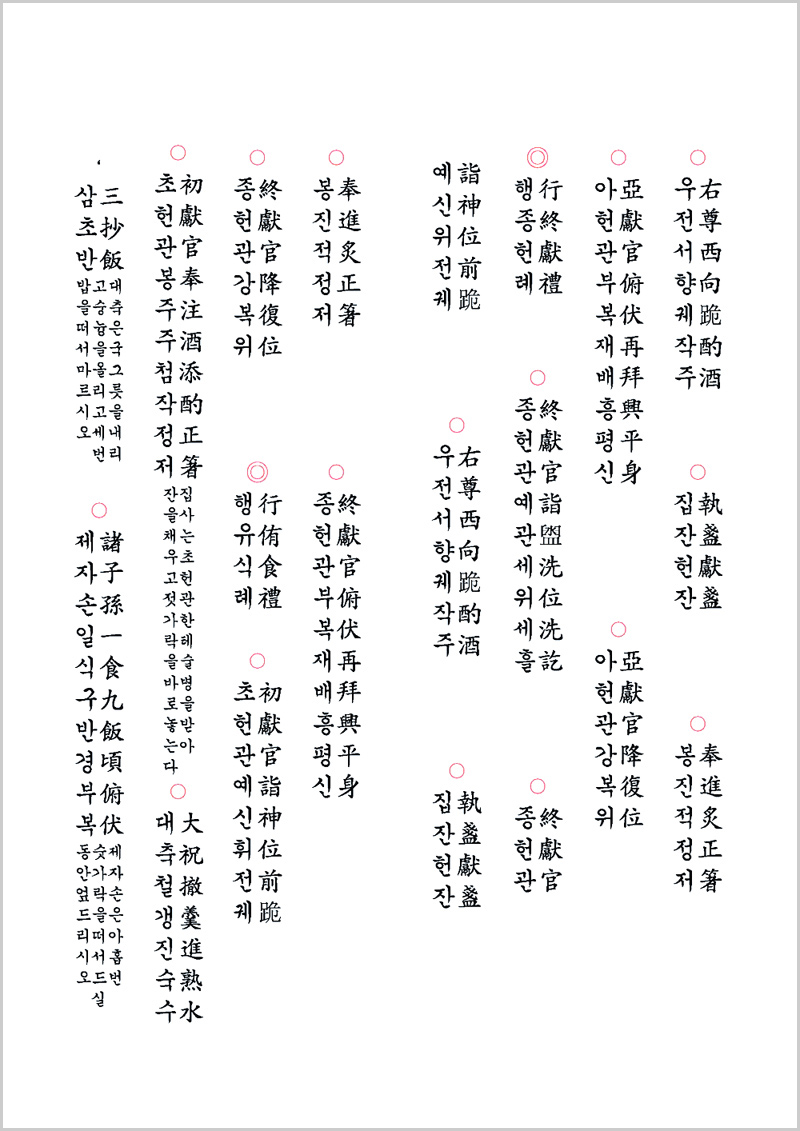 ○右尊西向跪酌酒
우전서향궤작주
○執盞獻盞
집잔헌잔
○奉進炙正箸
봉진적정저
○亞獻官俯伏再拜興平身
아헌관부복재배흥평신
○亞獻官降復位
아헌관강복위
◎行終獻禮
행종헌례
○終獻官詣盥洗位洗訖
종헌관예관세위세흘
○終獻官
종헌관
詣神位前跪
예신위전궤
○右尊西向跪酌酒
우전서향궤작주
○執盞獻盞
집잔헌잔
○奉進炙正箸
봉진적정저
○終獻官俯伏再拜興平身
종헌관부복재배흥평신
○終獻官降復位
종헌관강복위
◎行侑食禮
행유식례
○初獻官詣神位前跪
초헌관예신휘전궤
○初獻官奉注酒添酌正箸
초헌관봉주주첨작정저
집사는초헌관한테술병을받아
잔을채우고젓가락을바로놓는다
○大祝撤羹進熟水
대축철갱진숙수
三抄飯
삼초반
대축은국그릇을내리
고숭늉을올리고세번
밥을떠서마르시오
○諸子孫一食九飯頃俯伏
제자손일식구반경부복
제자손은아홉번
숫가락을떠서드실
동안엎드리시오